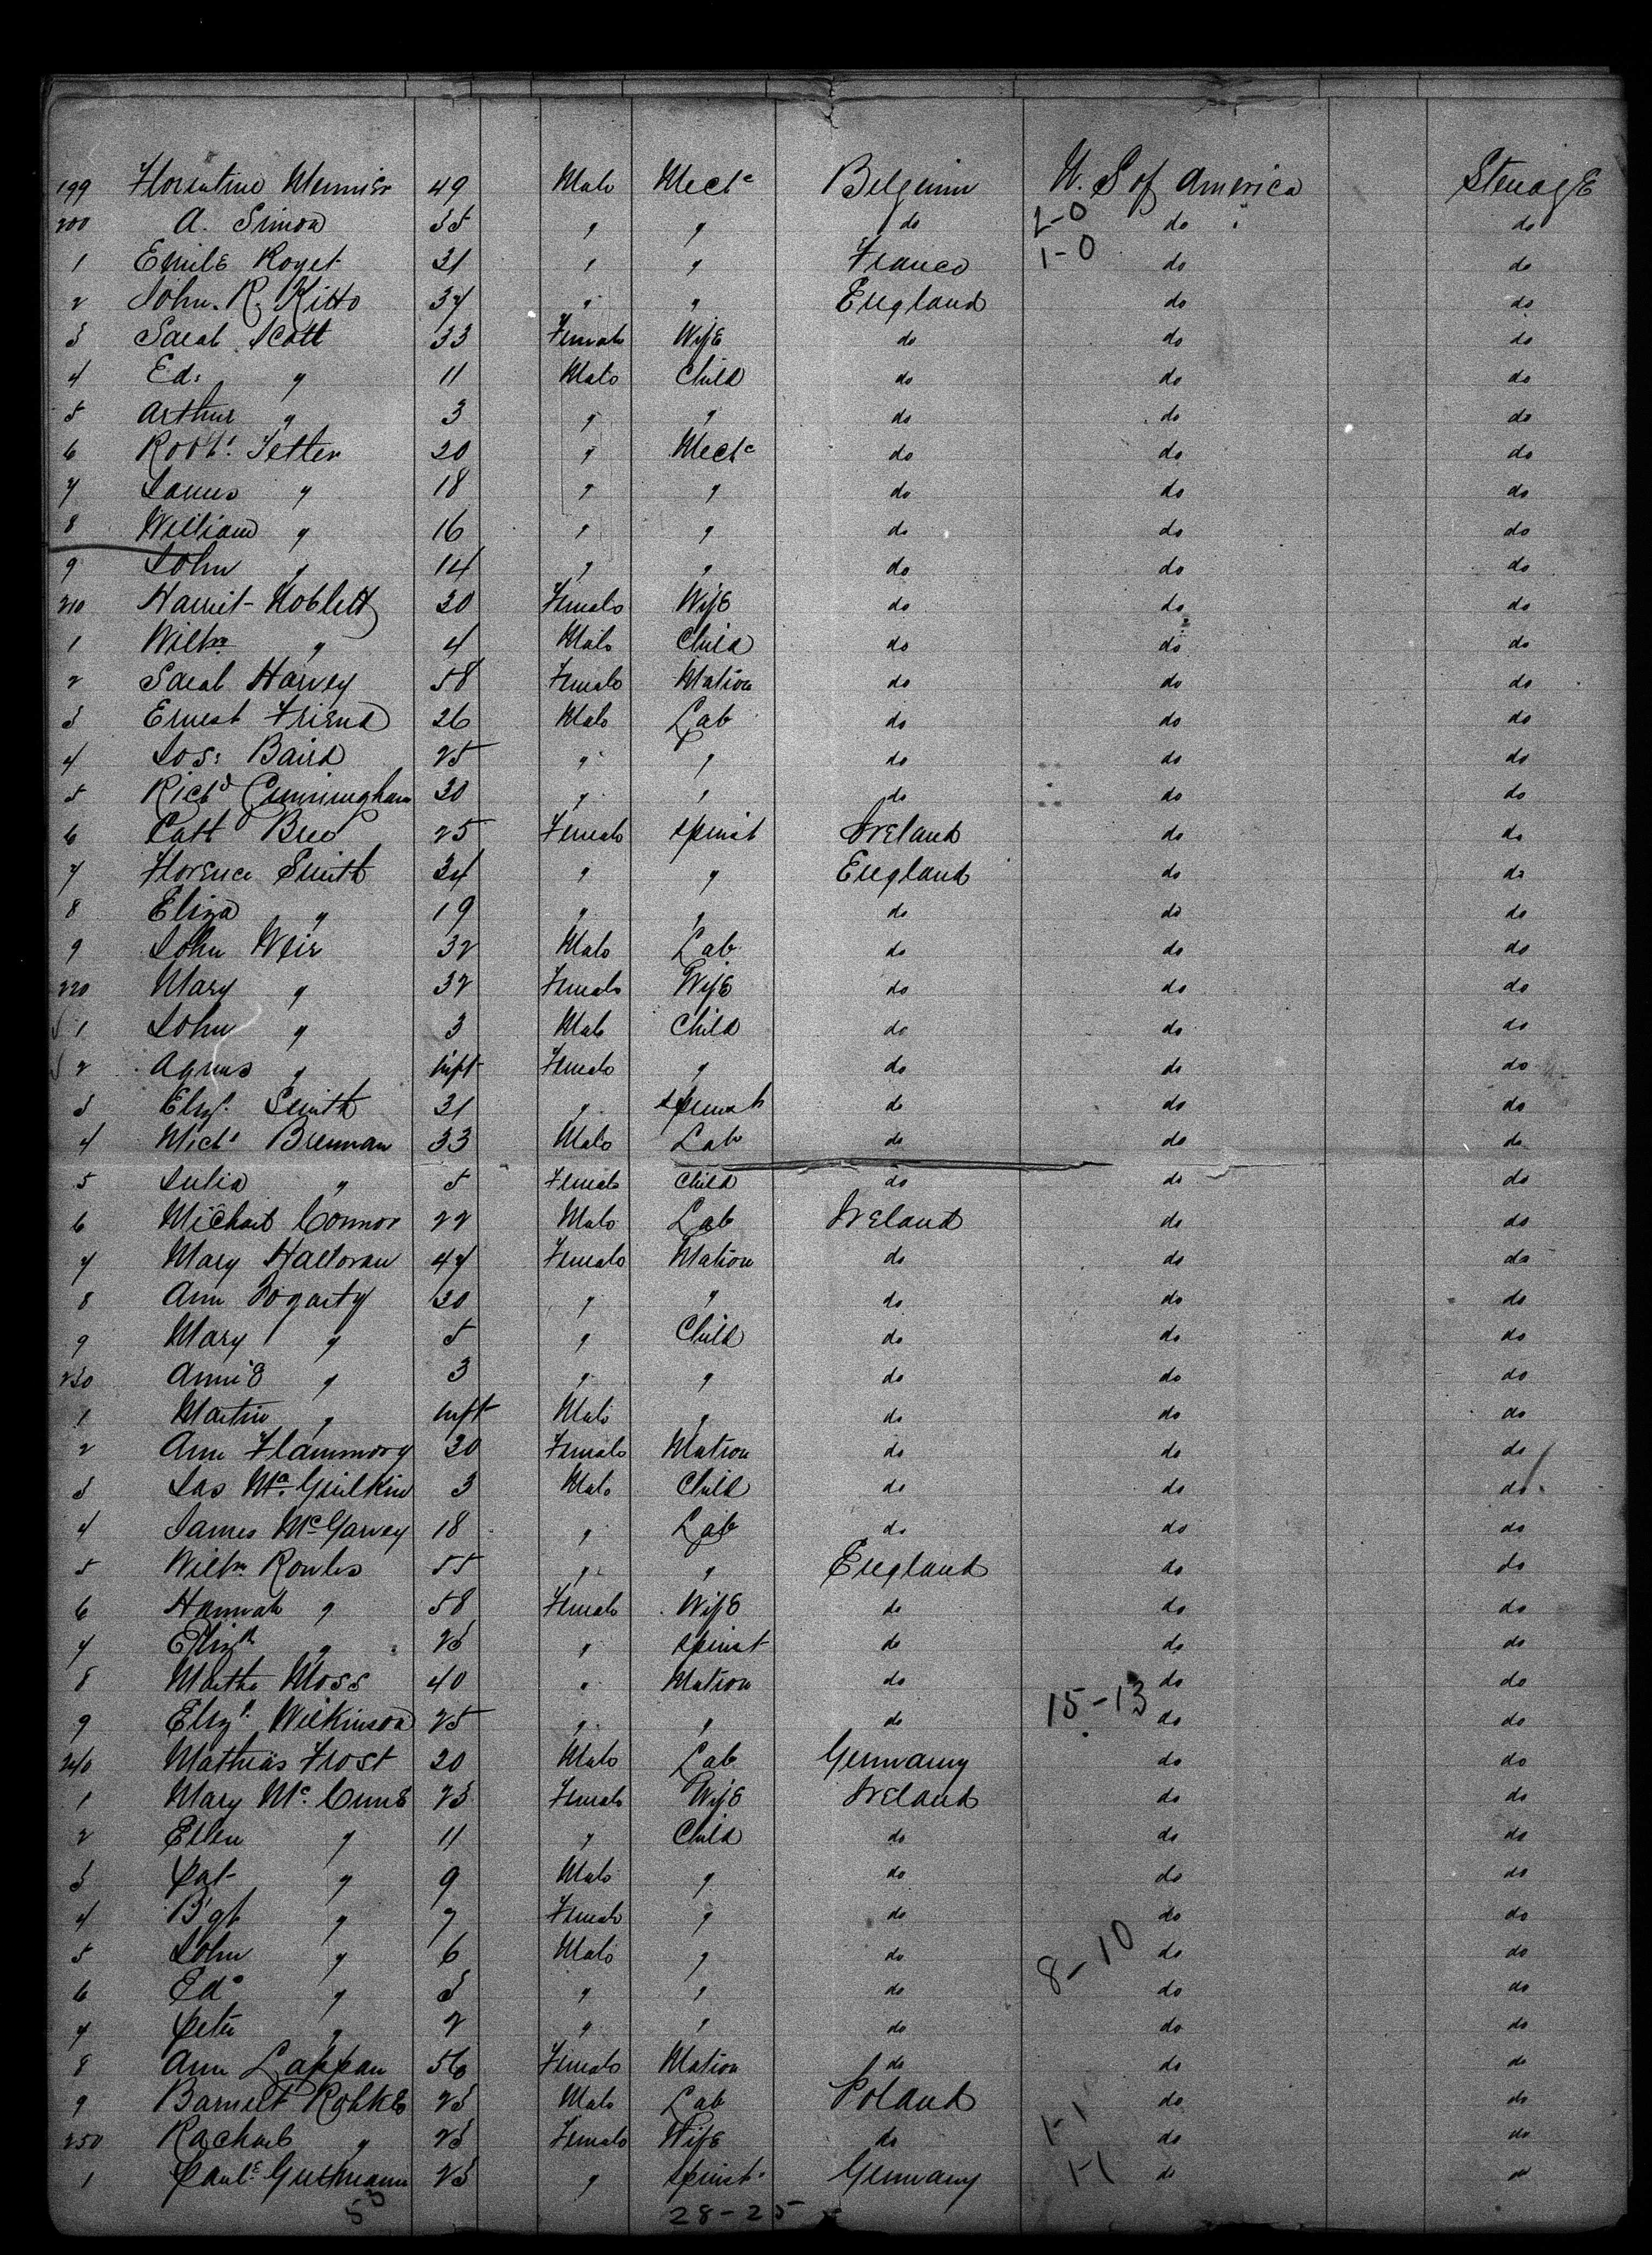 199 Florentine Mennier 49 Male Mect<sup>c</sup> Belgium U. S of America SteeragE
200 A. Simon 35 " " do 2-0 do do
1 EmilE Roget 31 " " France 1-0 do do
2 John. R. Kitto 37 " " England do do
3 Sarah Scott 33 Female WifE do do do
4 Ed: " 11 Male Child do do do
5 Arthur " 3 " " do do do
6 Robt. Tetter 20 " Mectc do do do
7 James " 18 " " do do do
8 William " 16 " " do do do
9 John " 14 " " do do do
210 Harriet Koblett 30 Female WifE do do do
1 Willm " 4 Male Child do do do
2 Sarah Harvey 58 Female Matron do do do
3 Ernest Friend 26 Male Lab do do do
4 Jos: Baird 25 " " do do do
5 Richd Cunningham 30 " " do do do
6 Cath 25 Female Spinst Ireland do do
7 Florence Smith 24 " " England do do
8 Eliza " 19 " " do do do
9 John Weir 32 Male Lab do do do
220 Mary " 32 Female WifE do do do
1 John " 3 Male Child do do do
2 Agnes " Inft Female " do do do
3 Elizh. Smith 31 " Spinst do do do
4 Michl Brennan 33 Male Lab do do do
5 Julia " 5 Female Child do do do
6 Michael Connor 22 Male Lab Ireland do do
7 Mary Halloran 47 Female Matron do do do
8 Ann Fogarty 30 " " do do do
9 Mary " 5 " Child do do do
230 AnniE " 3 " " do do do
1 Martin " Inft Male " do do do
2 Ann Flammory 30 Female Matron do do do
3 Jas Mc. Guilkin 3 Male Child do do do
4 James McGarvey 18 " Lab do do do
5 Willm Rowles 55 " " England do do
6 Hannah " 58 Female WifE do do do
7 Elizh " 23 " Spinst do do do
8 Martha Moss 40 " Matron do do do
9 Elizh. Wilkinson 25 " " do 15-13 do do
240 Mathias Frost 20 Male Lab Germany do do
1 Mary Mc. CunE 23 Female WifE Ireland do do
2 Ellen " 11 " Child do do do
3 Pat " 9 Male " do do do
4 Bgt " 7 Female " do do do
5 John " 6 Male " do 8-10 do do
6 Edd " 3 " " do do do
7 Peter " 2 " " do do do
8 Ann Lappan 56 Female Matron do do do
9 Barnett RohlkE 23 Male Lab Poland do do
250 Rachael " 23 Female WifE do 1-1 do do
1 Paule Gutmann 23 " Spinst. Germany 1-1 do do
53 28-25